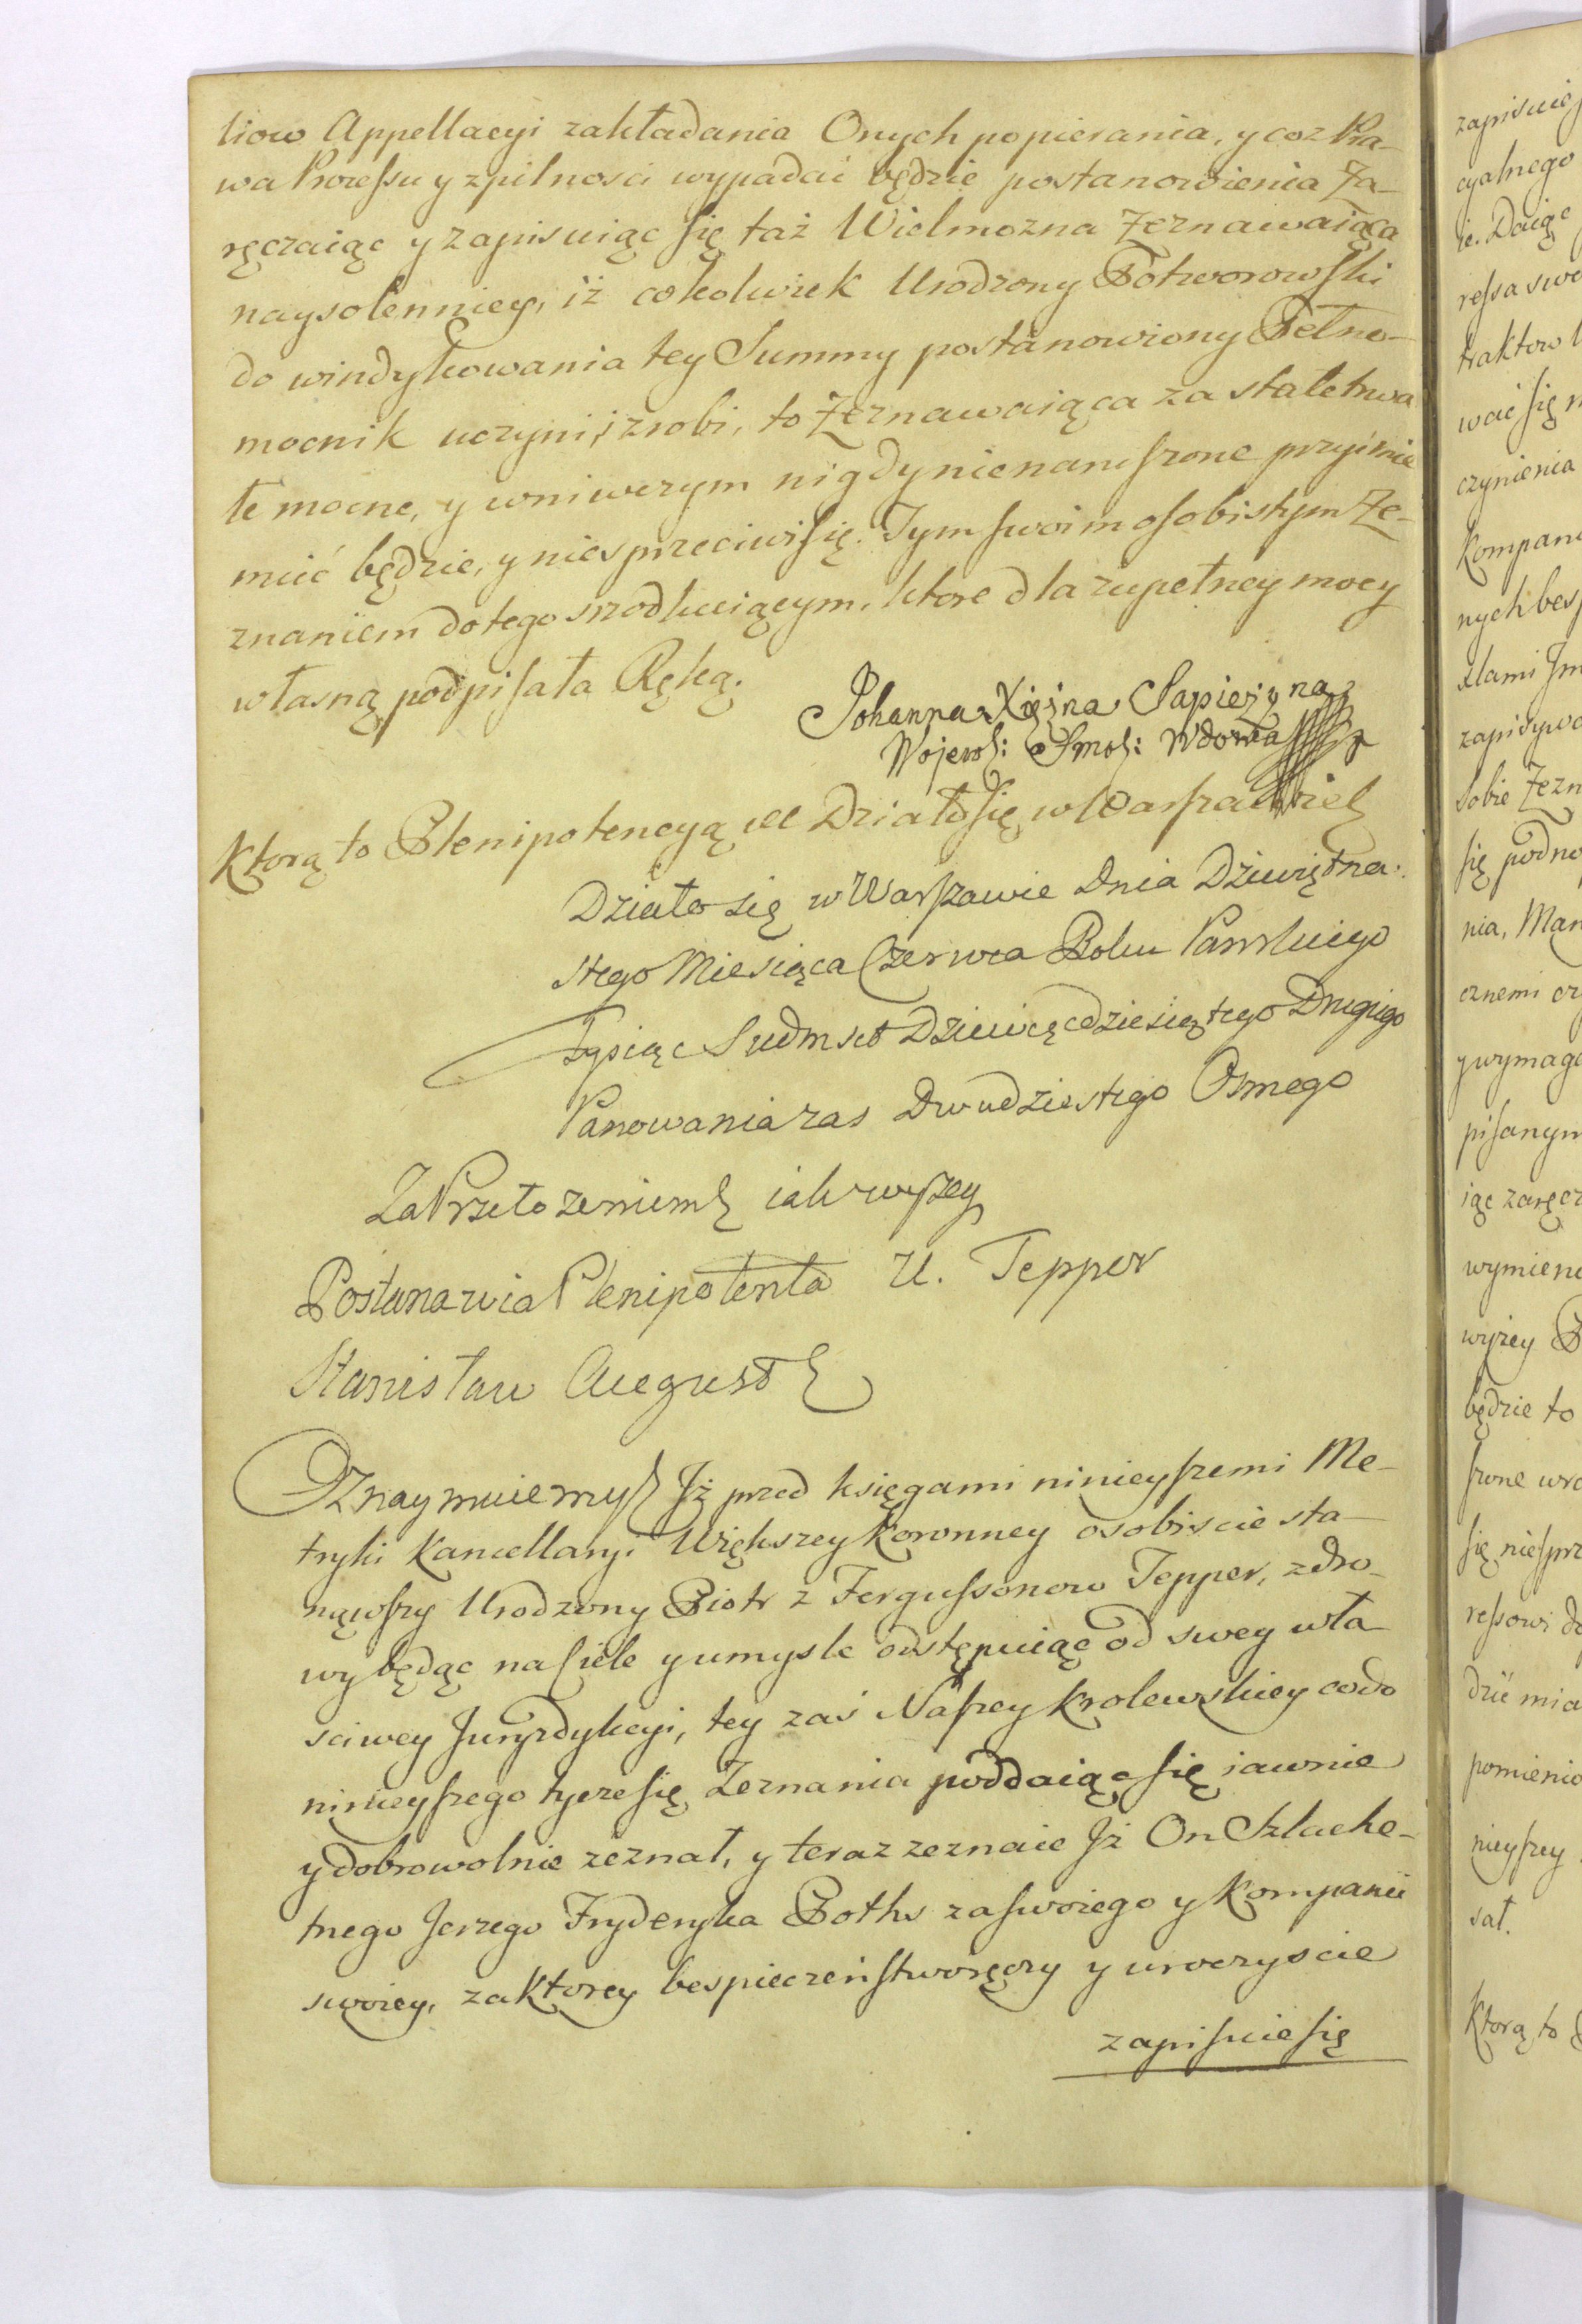 tiow Appellacyi zakładania Onych popierania, y co z Pra-
wa Processu y zpilnosci wypadać będzie postanowienia Za-
ręczaiąc y zapisuiąc się taż Wielmozna Zeznawaiąca
naysolenniey, iż cokolwiek Urodzony Potworowski
do windykowania tey Summy postanowiony Pełno-
mocnik uczyni, i zrobi, to Zeznawaiąca za stałe trwa
łe mocne, y wniwczym nigdy nienaruszone przyimie
mieć będzie, y niesprzeciwi się. Tym swoim osobistym Ze-
znaniem do tego srzodkuiącym, ktore dla zupełney mocy
własną podpisała Ręką.
Johanna Xiężna Sapieżyna
Wojewo: Smol: Wdowa
Ktorą to Plenipotencyą etc Działo się w Warszawie
Działo się w Warszawie Dnia Dziewiętna-
stego Miesiąca Czerwca Roku Pańskiego
Tysiąc Siedmset Dziewięćdziesiątego Drugiego
Panowania zas Dwudziestego Osmego
Za Przełożeniem iak wyszey
Postanawia Plenipotenta U. Tepper
Stanisław August
Oznaymuiemy Iż przed księgami ninieyszemi Me-
tryki Kancellaryi Większey Koronney osobiscie sta-
nąwszy Urodzony Piotr z Fergussonow Tepper, zdro-
wy będąc na Ciele y umysle odstępuiąc od swey wła-
sciwey Juryzdykcyi, tey zaś Naszey Krolewskiey co do
ninieyszego tycze się Zeznania poddaiąc się iawnie
y dobrowolnie zeznał, y teraz zeznaie Iż On Szlache-
tnego Jerzego Fryderyka Poths za swoiego y Kompanii
swoiey, za ktorey bespieczeństwo ręczy y uroczyscie
zapisuie się
zapisuię
cyalnego
ie. Daiąc
ressa swo
traktow
wać się
czynienia
Kompan
nych bes
zapisywa
Sobie Zezn
się podno
nia, Man
cznemi
y wymaga
pisanym
iąc zaręcz
wymieno
wyżey P
będzie to
szone
się niesprz
ressowi do
pomienio
nieyszey
sał.
Ktorą to